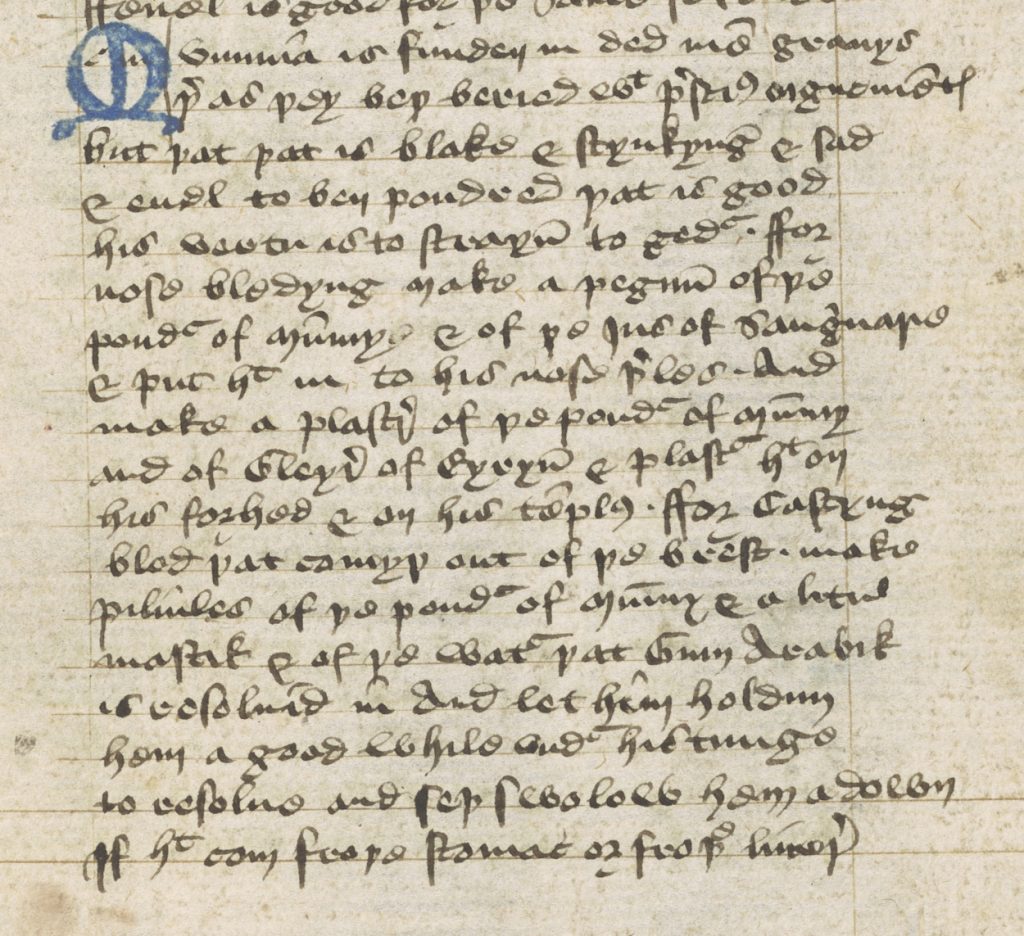 ffenel is good for þe
Mummia is funden in ded mēs grauys
þ as þey beþ beried wt p̄ciꝰ oygnemēt
but þat þat is blake & stynkyng & sad
& euel to ben poudred þat is good
his vertu is to strayn̄ to ged͛ · ffor
nose bledyng make a pegnu̅ of þe
poud͛ of mūmye & of þe Jus of Sanguarie
& put ht in to his nose þ͛les · And
make a plastr̛ of þe poud͛ of mūmy
and of Gleyr̛ of Eyryn̄ & plast͛ ht on
his forhed & on his tēplꝭ · ffor Castyng
blod þat comyþ out of þe brest · make
pilules of þe poud͛ of mūmy & a litil
mastik & of þe wat͛ þat Gum Arabik
is resolued in And let hem holdun
hem a good while vnd͛ his tunge
to resolue and seþ swolow hem a down
If ht com fro þe stomac or fro þ͛ liuer̛